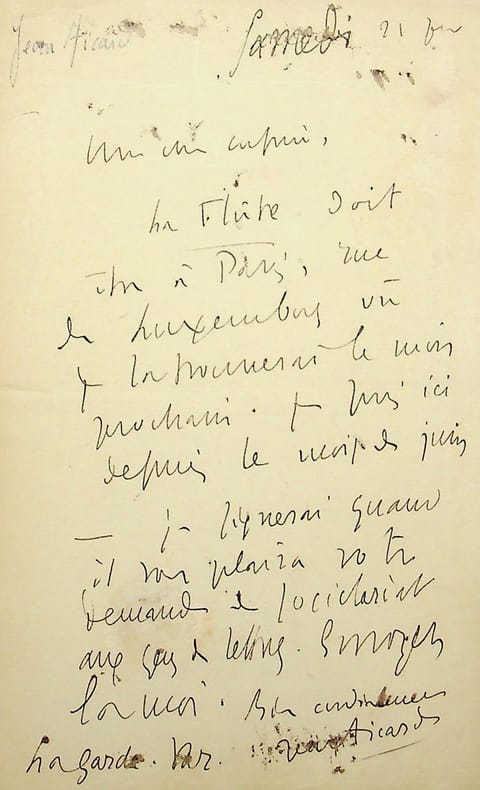 Jean Aicard
Samedi 21
Mon cher confrère,
La Flûte doit
être à Paris, rue
de Luxembourg où
je la trouverai le mois
prochain. Je suis ici
depuis le mois de juin
— Je signerai quand
il vous plaira votre
demande de sociétariat
aux gens de lettres. Envoyez
la moi. Bien cordialement
Jean Aicard
La Garde. Var.